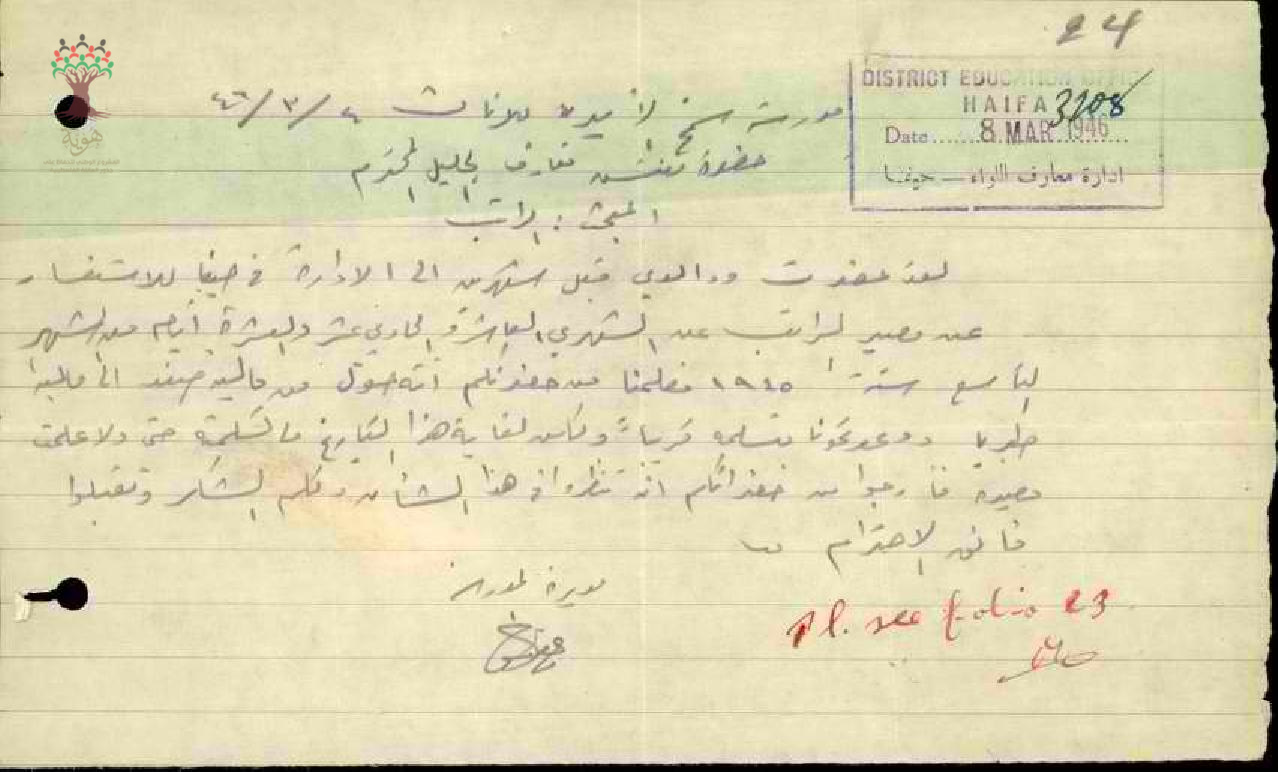 24
DISTRICT EDUCATION OFFICE
HAIFA 3208
Date 8 MAR 1946
ادارة معارف اللواء — حيفا
هوية
مدرسة سمخ الأميرية للإناث ٤٦/٣/٤
حضرة مفتش معارف الجليل المحترم
المبحث : الراتب
لقد حضرت ووالدي قبل شهرين الى الادارة في حيفا للاستفسار
عن مصير الراتب عن الشهرين العاشر والحادي عشر والعشرة أيام من الشهر
التاسع سنة ١٩٤٥ فعلمنا من حضرتكم انه حول من مالية صفد الى مالية
طبريا ووعدتمونا بتسلمه قريباً ولكن لغاية هذا التاريخ ما تسلمته حتى ولا علمت
مصيره فأرجوا من حضراتكم ان تنظروا في هذا الشأن ولكم الشكر وتقبلوا
فائق الاحترام
مديرة المدرسة
Pl. see folio 23